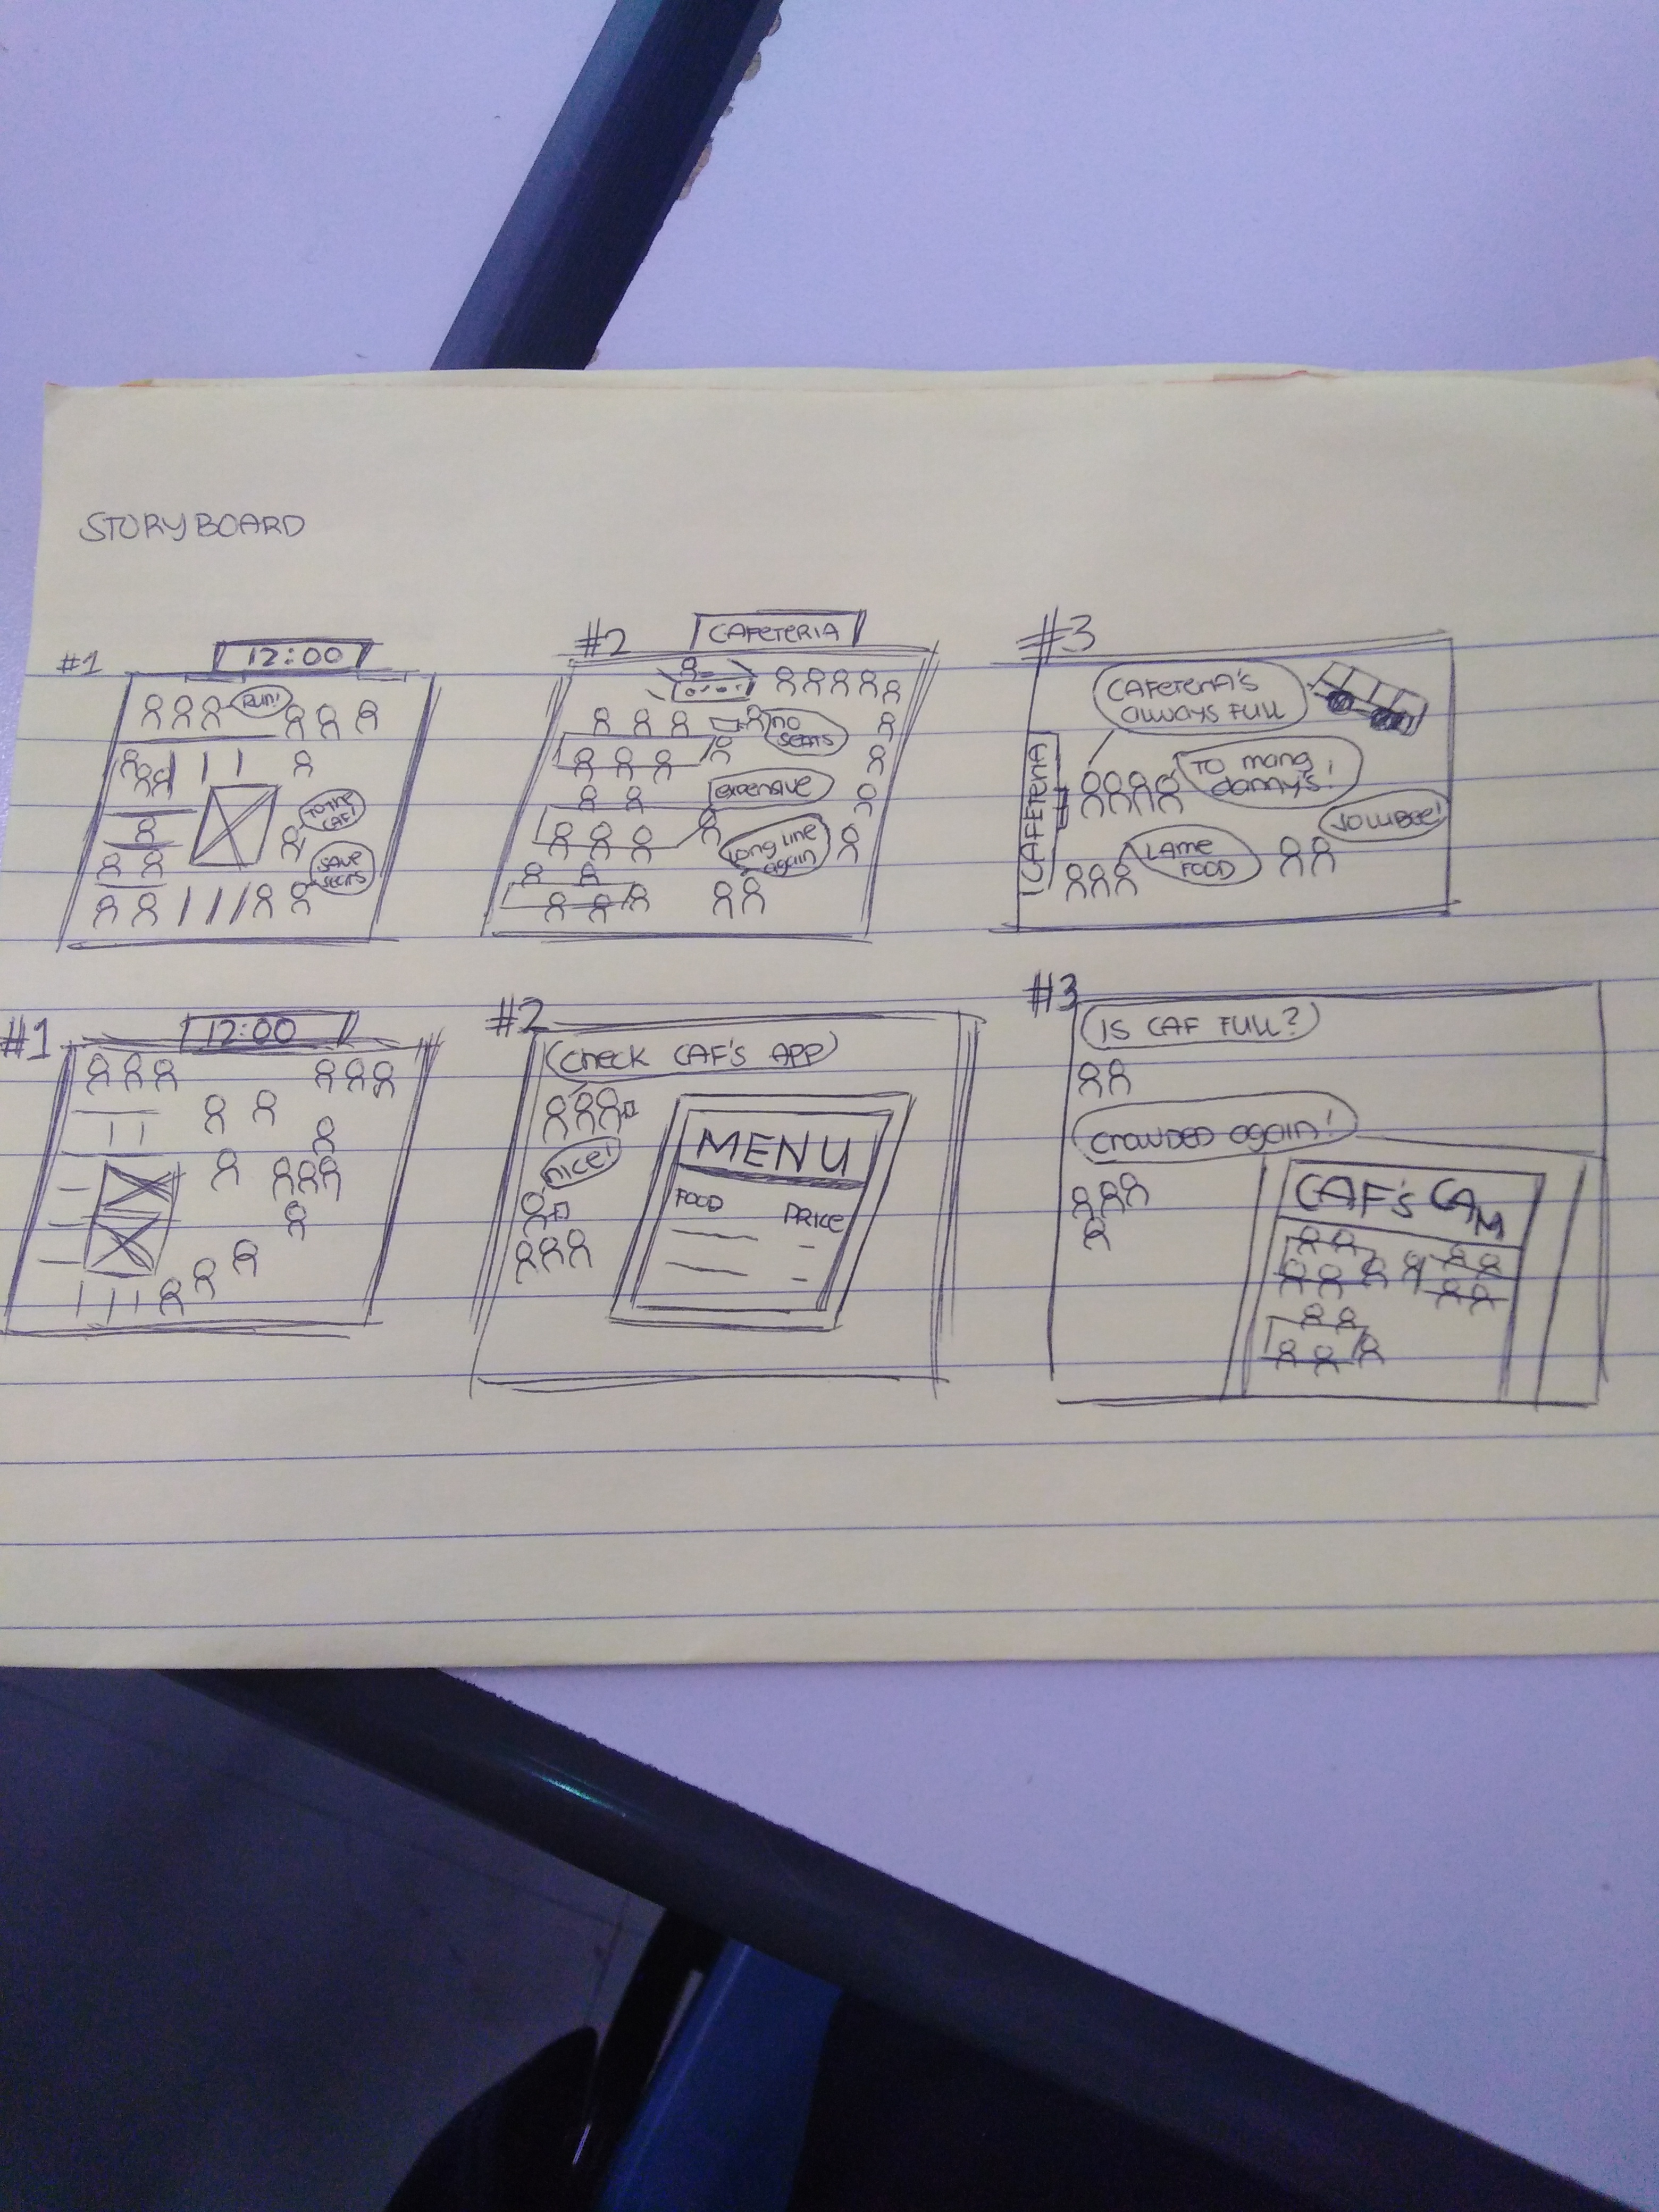 STORYBOARD
#1
12:00
RUN!
TO THE
CAF!
SAVE
SEATS
#2
CAFETERIA
no
seats
expensive
Long Line
again
#3
CAFETERIA'S
always FULL
CAFETERIA
TO mang
danny's!
JOLLIBEE!
LAME
FOOD
#1
12:00
#2
CHECK CAF'S APP
nice!
MENU
FOOD PRICE
#3
IS CAF FULL?
CROWDED again!
CAF's CAM